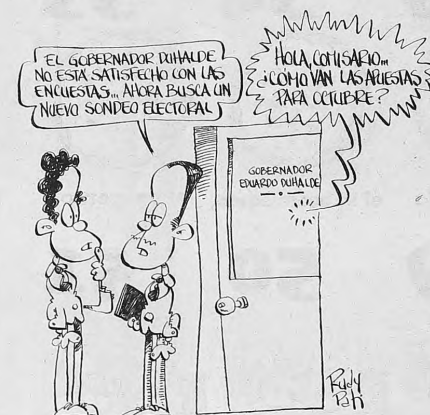 EL GOBERNADOR DUHALDE
NO ESTÁ SATISFECHO CON LAS
ENCUESTAS... AHORA BUSCA UN
NUEVO SONDEO ELECTORAL
HOLA, COMISARIO...
¿CÓMO VAN LAS APUESTAS
PARA OCTUBRE?
GOBERNADOR
EDUARDO DUHALDE
Rudy
Pati